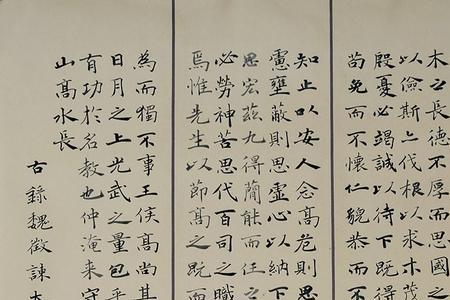 木之長德不厚而思國之
以儉斯亡伐根以求木茂
殷憂必竭誠以待下既得
苟免而不懷仁貌恭而不
知止以安人念高危則思
慮壅蔽則思虛心以納下
思宏茲九得簡能而任之
必勞神苦思代百司之職
焉惟先生以節高之既而
為而獨不事王侯高尚其
日月之上光武之量包乎
有功於名教也仲淹來守
山高水長
古錄魏徵諫太